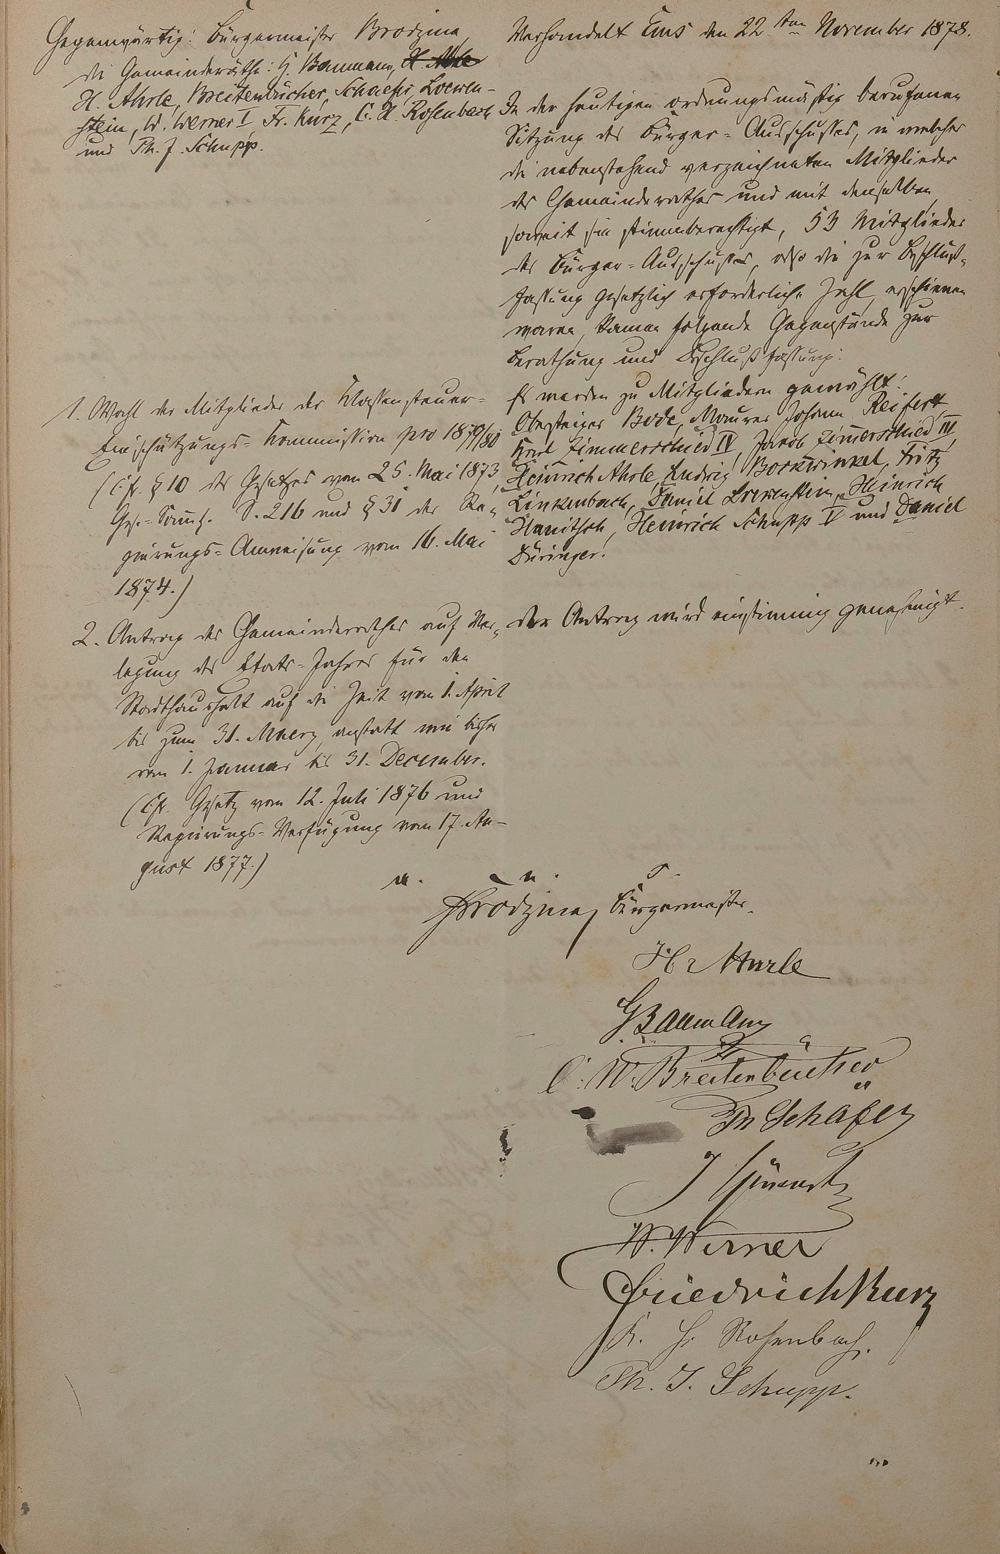 Gegenwärtig: Bürgermeister Brodzina,
die Gemeinderäthe: G. Baumann, H. Ahrle
H. Ahrle, Breitenbücher, Schaefer, Loewen-
stein, W. Werner I, Fr. Kurz, C. H. Rosenbach
und Th. J. Schupp.
Verhandelt Ems den 22ten November 1878.
In der heutigen ordnungsmäßig berufenen
Sitzung des Bürger-Ausschusses, in welcher
die nebenstehend verzeichneten Mitglieder
des Gemeinderathes und mit denselben,
soweit sie stimmberechtigt, 53 Mitglieder
des Bürger-Ausschusses, also die zur Beschluß-
fassung gesetzlich erforderliche Zahl, erschienen
waren, kamen folgende Gegenstände zur
Berathung und Beschlußfassung:
1. Wahl der Mitglieder der Klassensteuer-
Einschätzungs-Kommission pro 1879/80
(Cfr. § 10 des Gesetzes vom 25. Mai 1873,
Ges.-Samml. S. 216 und § 31 der Re-
gierungs-Anweisung vom 16. Mai
1874.)
Es werden zu Mitgliedern gewählt:
Obersteiger Bode, Maurer Johann Reifert,
Karl Zimmerschied IV, Jacob Zimmerschied III,
Heinrich Ahrle, Ludwig Bornwinkel, Fritz
Linkenbach, Daniel Löwenstein, Heinrich
Hanitsch, Heinrich Schupp V und Daniel
Düringer.
2. Antrag des Gemeinderathes auf Ver-
legung des Etats-Jahres für den
Stadthaushalt auf die Zeit vom 1. April
bis zum 31. Maerz, anstatt wie bisher
vom 1. Januar bis 31. December.
(Cfr. Gesetz vom 12. Juli 1876 und
Regierungs-Verfügung vom 17. Au-
gust 1877.)
Der Antrag wird einstimmig genehmigt.
a. u. s.
Brodzina, Bürgermeister.
Hr Ahrle
G Baumann
C. W. Breitenbücher
Th Schäfer
W. Werner
Friedrich Kurz
K. H. Rosenbach.
Th. J. Schupp.